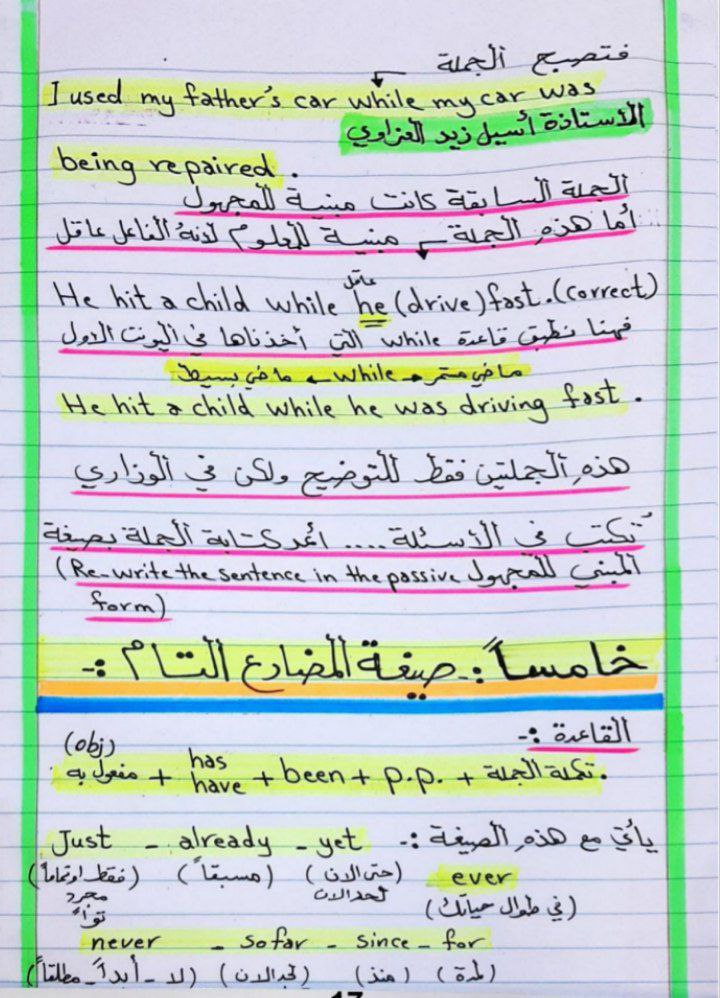 فتصبح الجملة
I used my father's car while my car was
الأستاذة أسيل زيد العزاوي
being repaired .
الجملة السابقة كانت مبنية للمجهول
أما هذهِ الجملة ← مبنية للمعلوم لأنهُ الفاعل عاقل
عاقل
He hit a child while he (drive) fast. (correct)
فهنا نطبق قاعدة while التي أخذناها في اليونت الاول
ماضي مستمر ← while → ماضي بسيط
He hit a child while he was driving fast .
هذهِ الجملتين فقط للتوضيح ولكن في الوزاري
تُكتب في الأسئلة .... أعد كتابة الجملة بصيغة
المبني للمجهول (Re-write the sentence in the passive
form)
خامساً :- صيغة المضارع التام :-
القاعدة :-
(obj)
مفعول به + has have + been + p.p. + تكملة الجملة .
يأتي مع هذهِ الصيغة :- Just - already - yet
(فقط اوتماماً) (مسبقاً) (حتى الان) ever
مجرد لحد الان
تواً (في طوال حياتك)
never - so far - since - for
(لا - أبداً - مطلقاً) (لحد الان) (منذ) (لمدة)
17